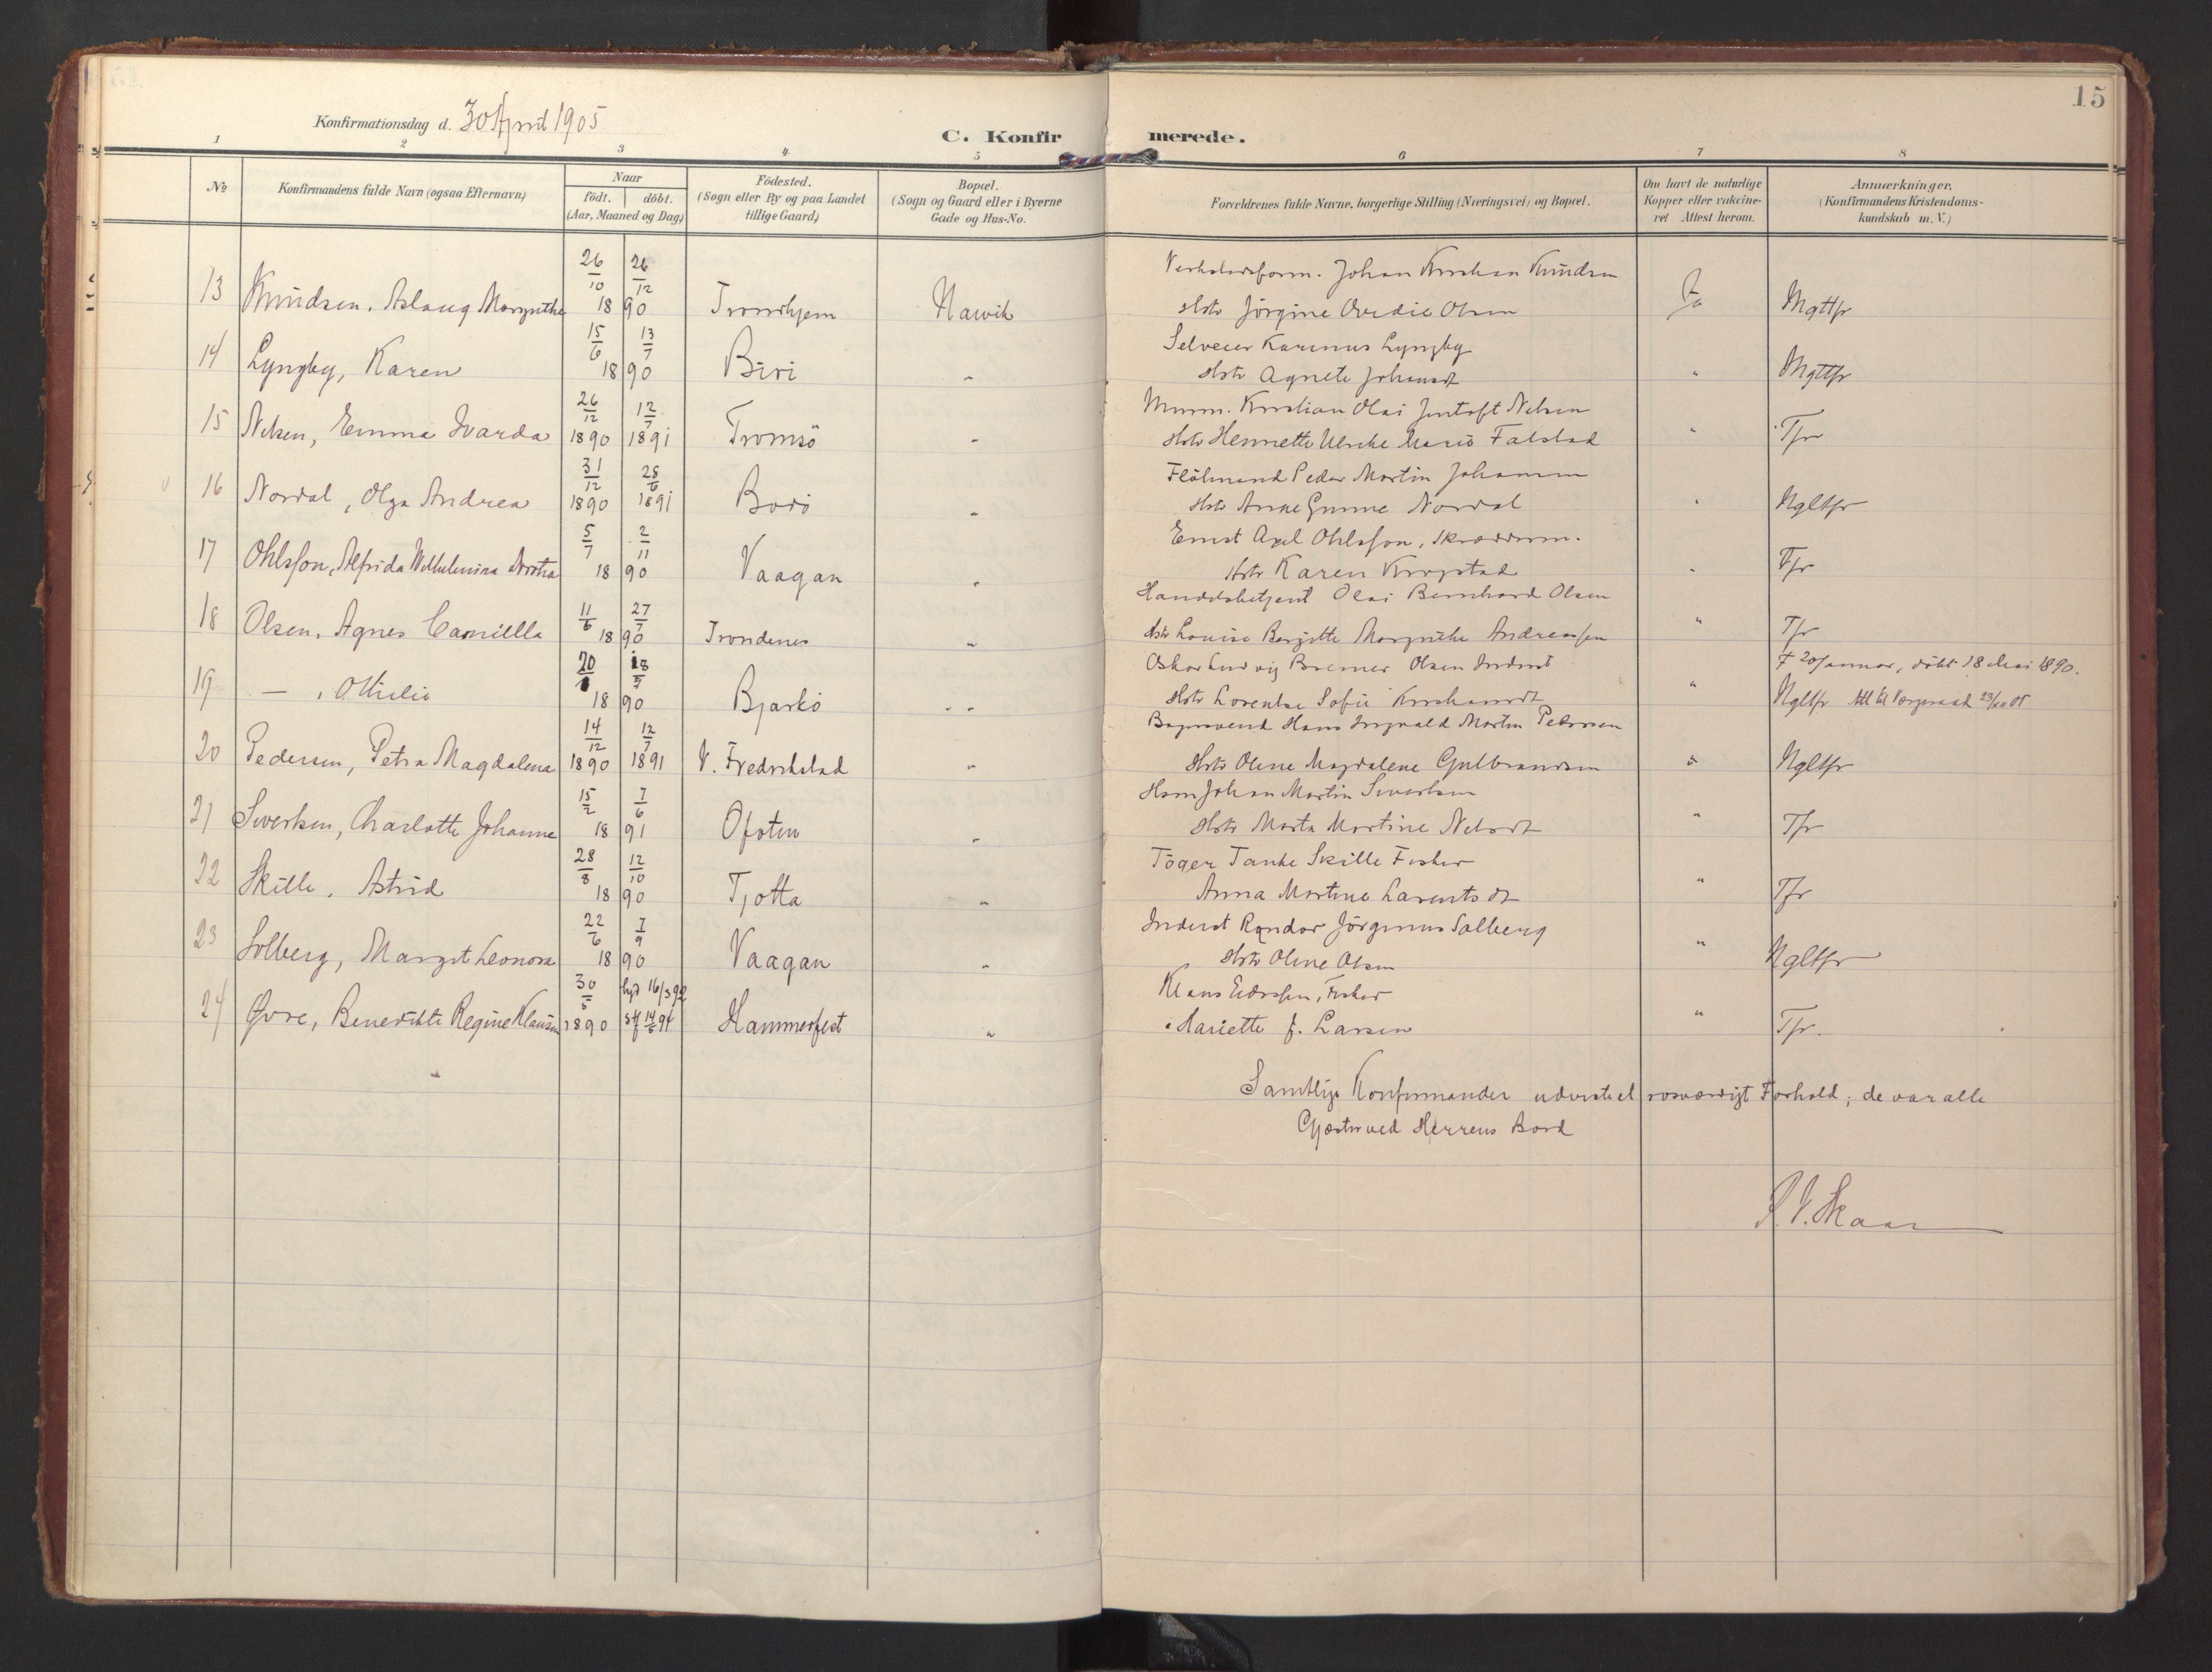 15
Konfirmationsdag d. 30 April 1905
C. Konfirmerede.
1 2 3 4 5 6 7 8
No
Konfirmandens fulde Navn (ogsaa Efternavn)
Naar
födt. döbt.
(Aar, Maaned og Dag)
Födested.
(Sogn eller By og paa Landet
tillige Gaard)
Bopæl.
(Sogn og Gaard eller i Byerne
Gade og Hus-No.
Forældrenes fulde Navne, borgerlige Stilling (Næringsvei) og Bopæl.
Om havt de naturlige
Kopper eller vakcine-
ret Attest herom.
Anmærkninger.
(Konfirmandens Kristendoms-
kundskab m. V.)
Johan Kristian Knudsen
13 Knudsen, Aslaug Margrethe 26/10 26/12 1890 Trondhjem Narvik Hstr Jörgine Olsen Ja Mgttfr
Selveier Karinus Lyngby
14 Lyngby, Karen 15/6 13/7 1890 Biri " Hstr Agnete Johansdt " Mgttfr
Murm. Kristian Olai Jentoft Nelsen
15 Nelsen, Emma Ivarda 26/12 1890 12/7 1891 Tromsö " Hstr Henrette Ulrike Marie Falstad " Tfr
Peder Martin Johansen
16 Nordal, Olga Andrea 31/12 1890 28/6 1891 Bodö " Hstr Anne Nordal " Ngltfr
Ernst Axel Ohlsson, Skræderm.
17 Ohlsson, Alfrida Wilhelmina 5/7 2/11 1890 Vaagan " Hstr Karen " Tfr
Handelsbetjent Olai Bernhard Olsen
18 Olsen, Agnes Camilla 11/6 27/7 1890 Trondenes " Hstr Louise Bergitte Margrethe Andreassen " Tfr
Oskar Ludvig Bremer Olsen Inderst
f 20 Januar, döbt 18 Mai 1890.
19 — , Othilie 20/1 18/5 1890 Bjarkö " " Hstr Lorentse Sofie Kristiansdt " Ngltfr
Hans Ingvald Martin Pedersen
20 Pedersen, Petra Magdalena 14/12 1890 12/7 1891 V. Fredrikstad " Hstr Oline Magdalene Gulbrandsen " Ngltfr
Hans Johan Martin Sivertsen
21 Sivertsen, Charlotte Johanne 15/2 7/6 1891 Ofoten " Hstr Marta Martine Nelsdt " Tfr
Töger Tanke Skille Fisker
22 Skille, Astrid 28/8 12/10 1890 Tjotta " Anna Martine Larentsdt " Tfr
Inderst Randor Jörginus Solberg
23 Solberg, Margit Leonora 22/6 7/9 1890 Vaagan " Hstr Oline Olsen " Ngltfr
Klaus Fisker
24 Øvre, Benedikte Regine Klausen 30/5 1890 16/3 92 Hammerfest " Mariette J. Larsen " Tfr.
Samtlige Konfirmander udviste et rosværdigt Forhold; de var alle
Gjæster ved Herrens Bord
P. V. Skaar